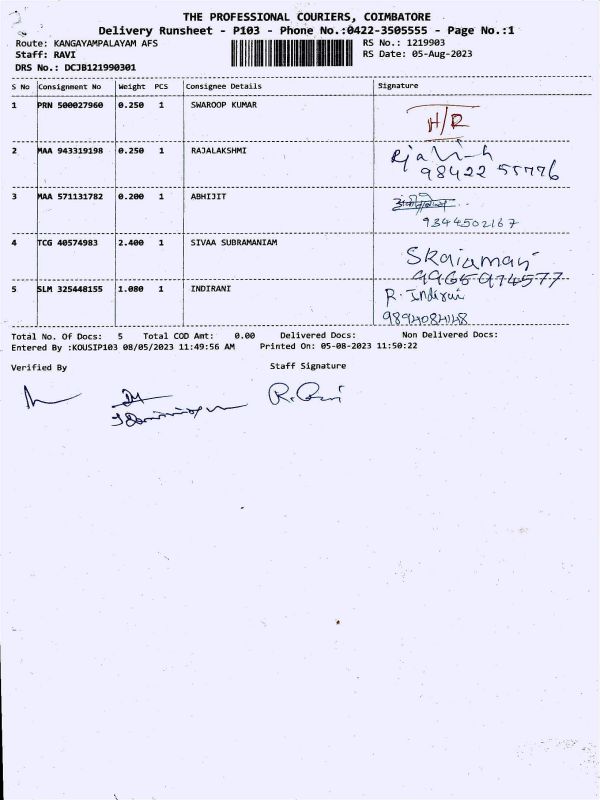 THE PROFESSIONAL COURIERS, COIMBATORE
Delivery Runsheet - P103 - Phone No.:0422-3505555 - Page No.:1
Route: KANGAYAMPALAYAM AFS
RS No.: 1219903
Staff: RAVI
RS Date: 05-Aug-2023
DRS No.: DCJB121990301
S No Consignment No Weight PCS Consignee Details Signature
1 PRN 500027960 0.250 1 SWAROOP KUMAR
H/R
2 MAA 943319198 0.250 1 RAJALAKSHMI
98422 55776
3 MAA 571131782 0.200 1 ABHIJIT
9344502167
4 TCG 40574983 2.400 1 SIVAA SUBRAMANIAM
9965974577
5 SLM 325448155 1.080 1 INDIRANI
R. Indirani
Total No. Of Docs: 5 Total COD Amt: 0.00 Delivered Docs: Non Delivered Docs:
Entered By :KOUSIP103 08/05/2023 11:49:56 AM Printed On: 05-08-2023 11:50:22
Verified By Staff Signature
R. Ravi